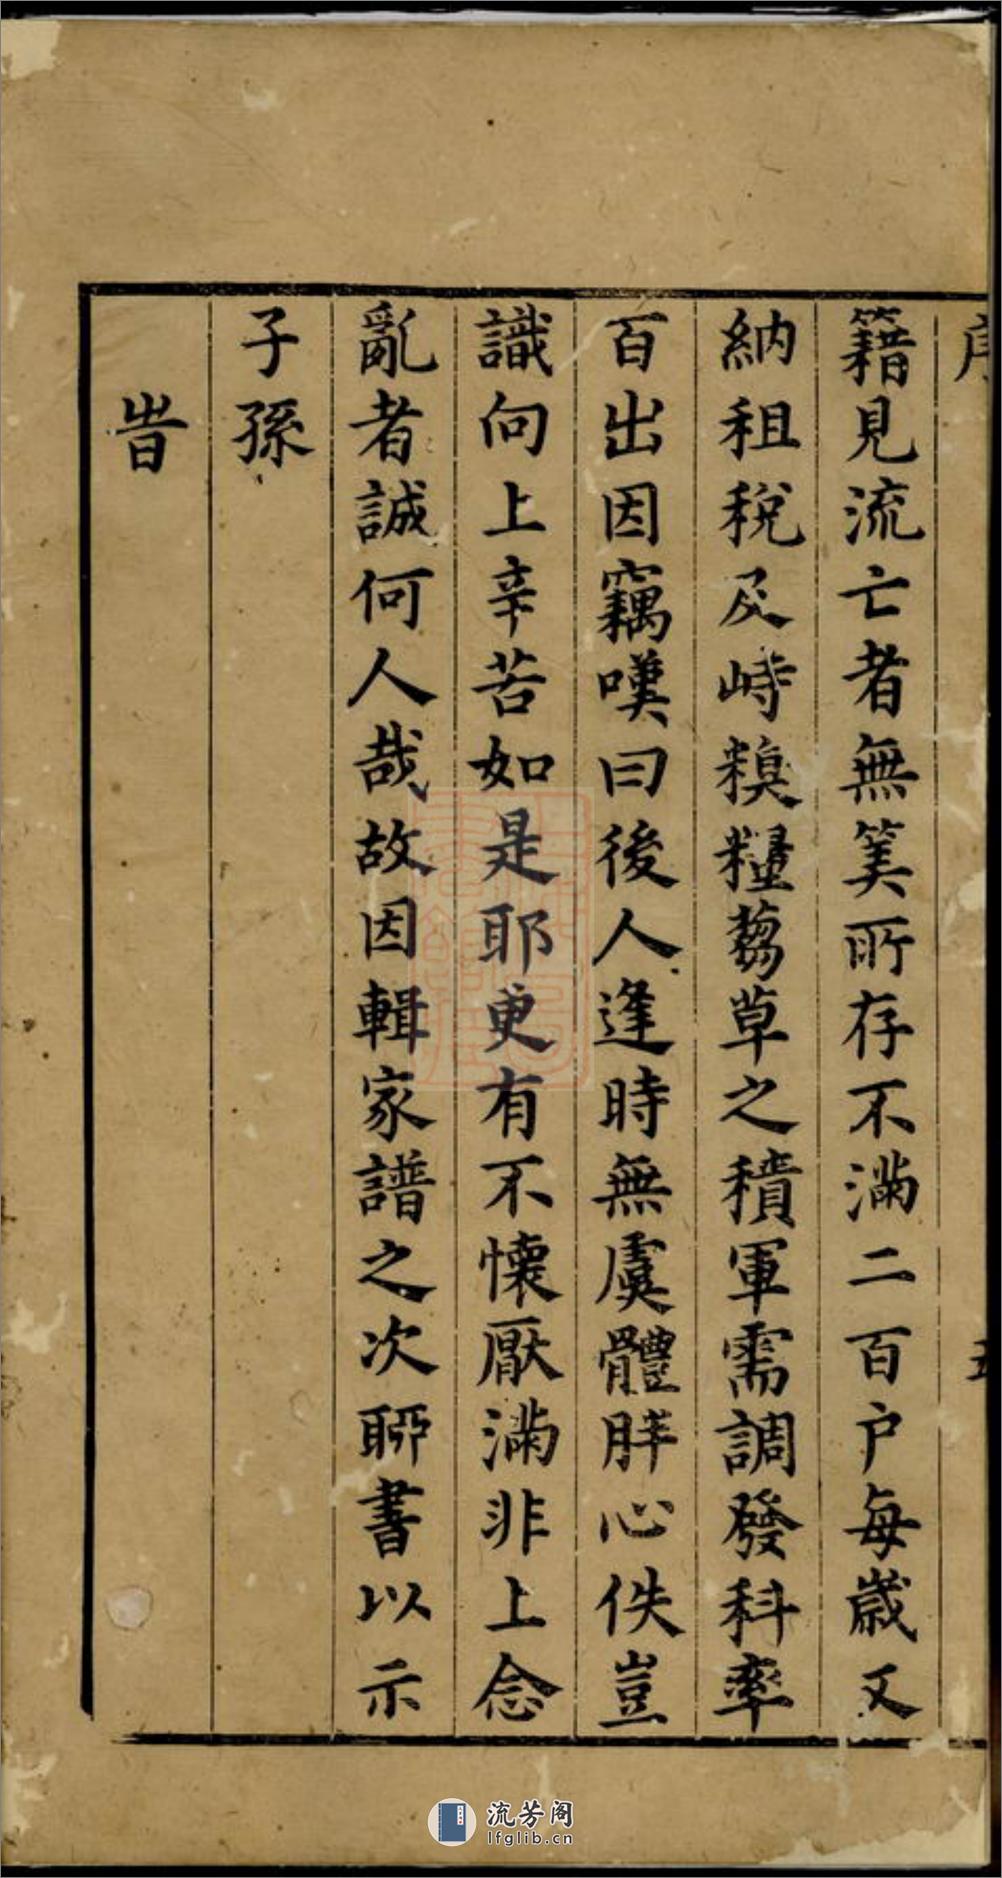 籍見流亡者無筭所存不滿二百户每歲又
納租稅及峙糗糧蒭草之積軍需調發科率
百出因竊嘆曰後人逢時無虞體胖心佚豈
識向上辛苦如是耶更有不懷厭滿非上念
亂者誠何人哉故因輯家譜之次聊書以示
子孫
旹
流芳阁
lfglib.cn